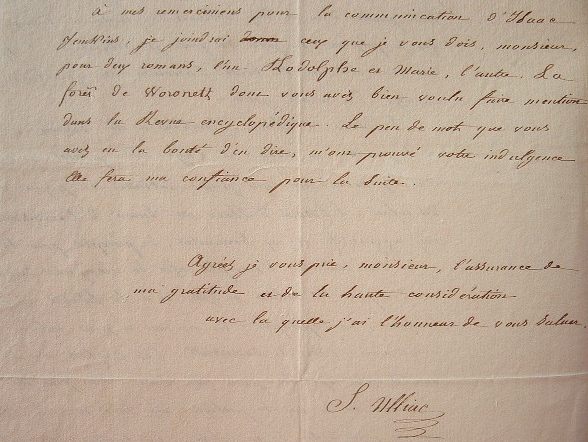 à mes remercimens pour la communication d'Isaac
Jenkins, je joindrai ceux que je vous dois, monsieur,
pour deux romans, l'un Rodolphe et Marie, l'autre La
forêt de Woronetz dont vous avez bien voulu faire mention
dans la Revue encyclopédique. Le peu de mots que vous
avez eu la bonté d'en dire, m'ont prouvé votre indulgence
Elle fera ma confiance pour la suite.
Agréez, je vous prie, monsieur, l'assurance de
ma gratitude et de la haute considération
avec la quelle j'ai l'honneur de vous saluer.
S. Ulliac